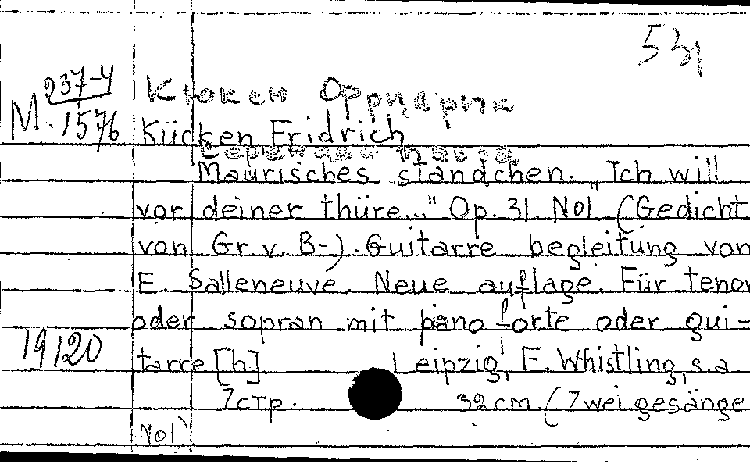 531
237-4
M. 1576
Кюкен Фридрих
Kücken Fridrich
Maurisches ständchen. "Ich will
vor deiner thüre..." Op. 31 No1 (Gedicht
von Gr. v. B-). Guitarre begleitung von
E. Salleneuve. Neue auflage. Für tenor
oder sopran mit piano forte oder gui-
19120
tarre [h]. Leipzig, F. Whistling, s.a.
7 стр. 32 cm. (Zwei gesänge
No1)